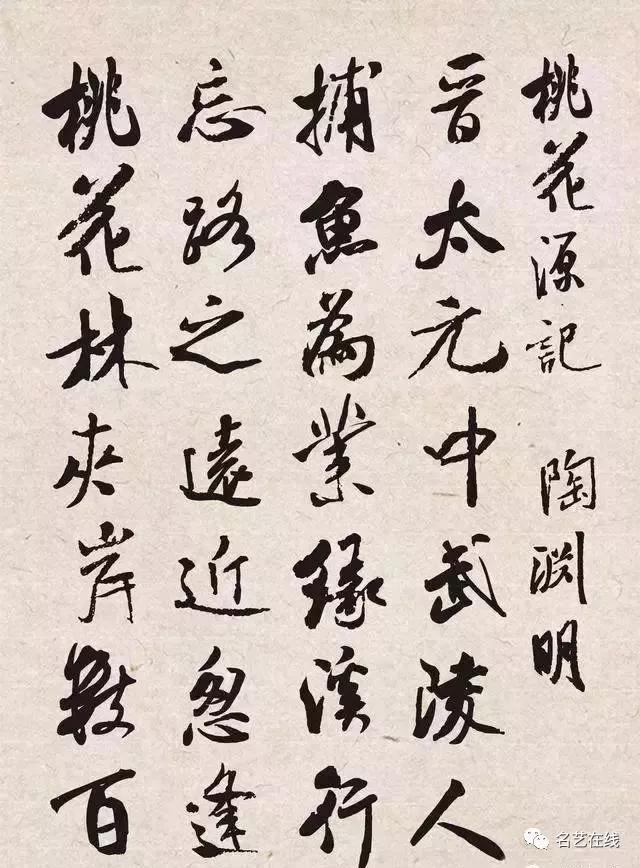 桃花源记 陶渊明
晋太元中武陵人
捕鱼為業緣溪行
忘路之遠近忽逢
桃花林夾岸數百
名艺在线